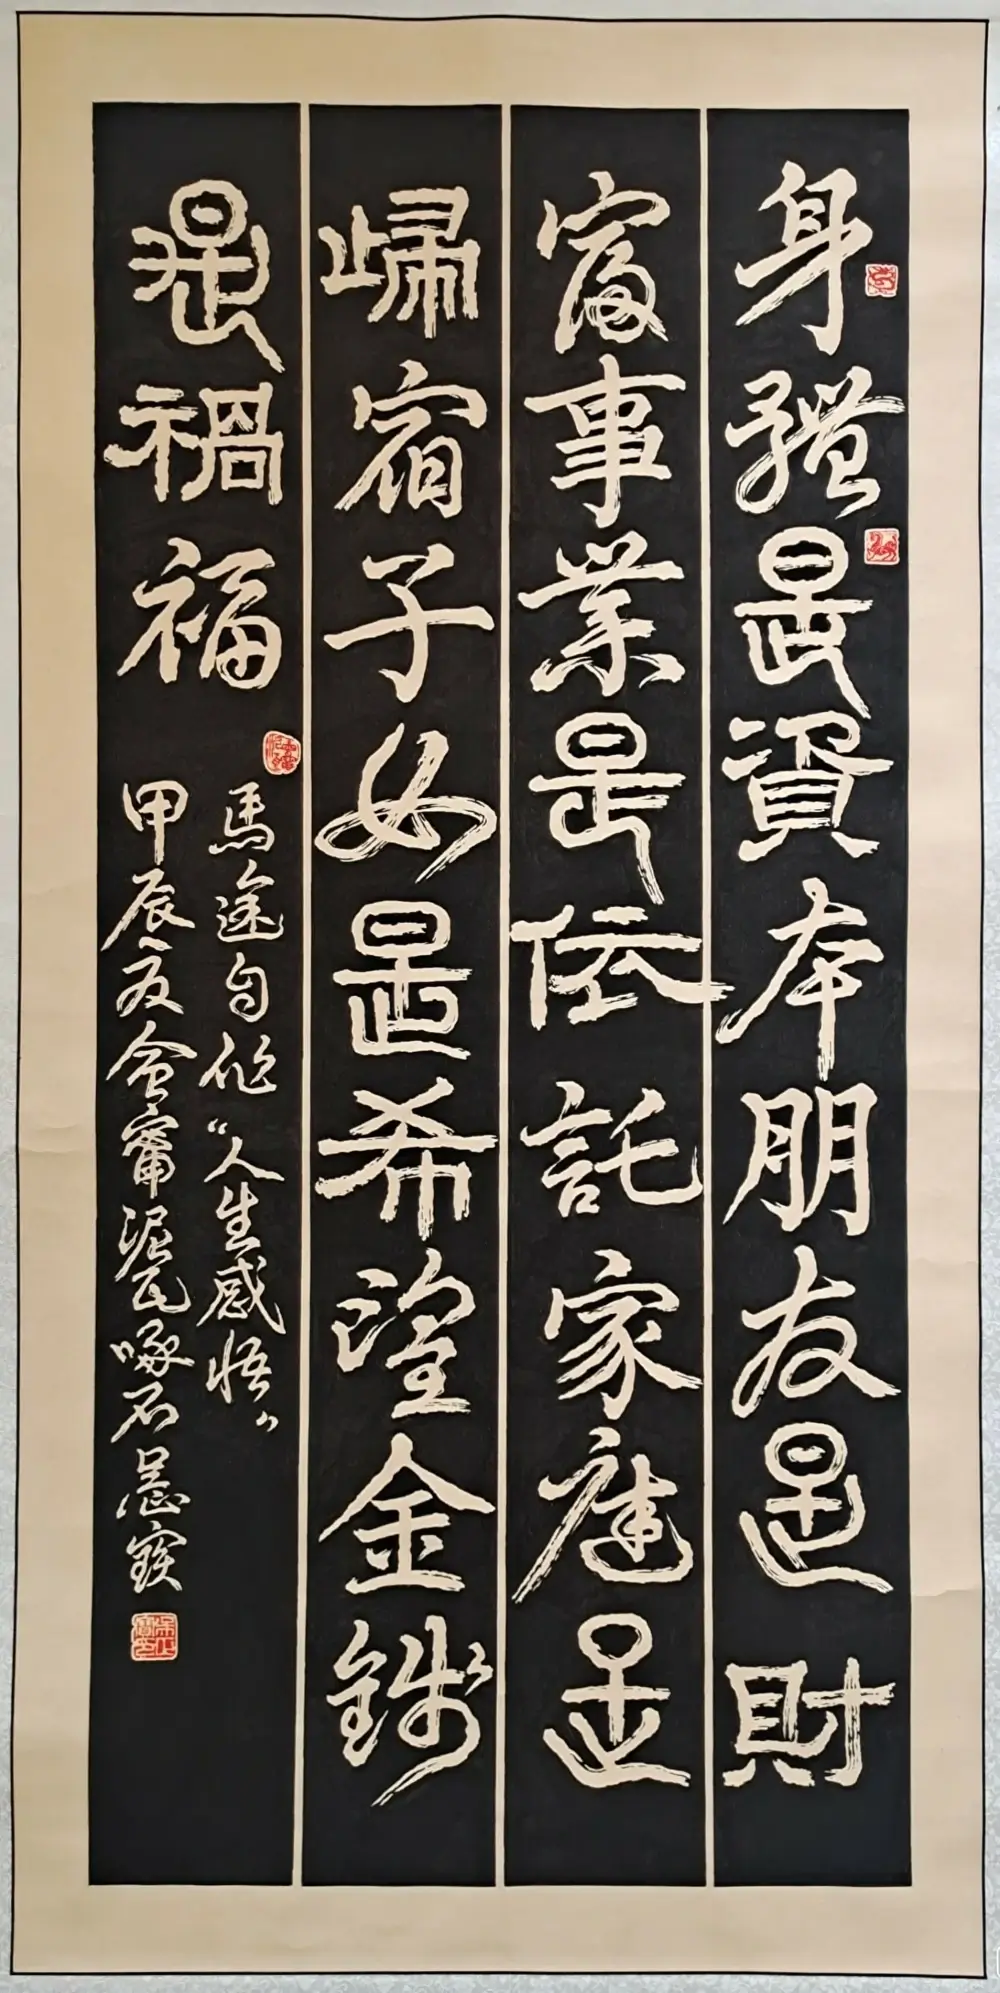 身體是資本朋友是財
富事業是依託家庭是
歸宿子女是希望金錢
是禍福
馬途句作“人生感悟”
甲辰夏會甯泥瓦啄石